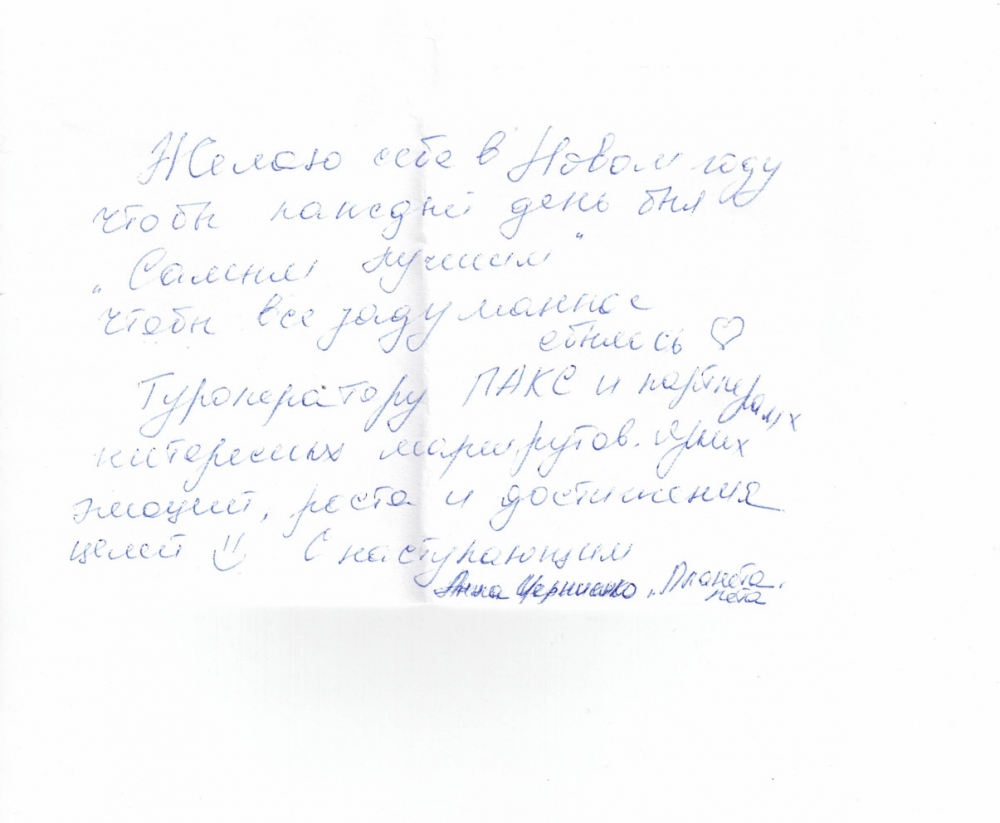 Желаю себе в Новом году
чтобы каждый день был
„Самым лучшим"
чтобы все задуманное
сбылось ♡
Туроператору ПАКС и партнерам
интересных маршрутов. Ярких
эмоций, роста и достижения
целей С наступающим
Анна „Планета
лета"